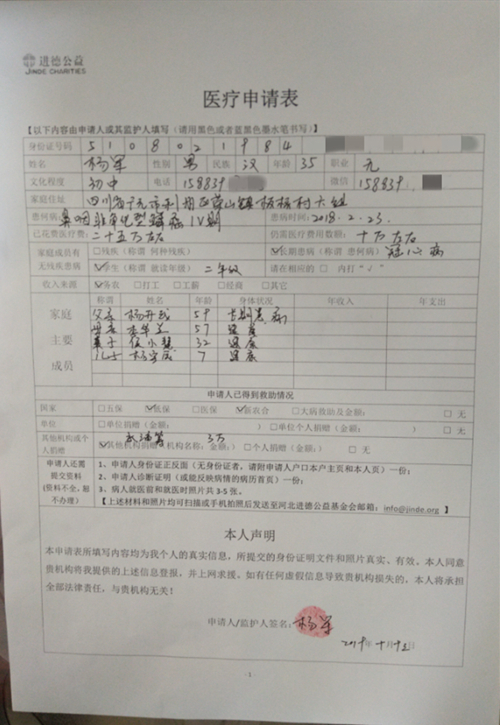 进德公益
JINDE CHARITIES
医疗申请表
【以下内容由申请人或其监护人填写（请用黑色或者蓝黑色墨水笔书写）】
身份证号码 5108021984
姓名 杨军 性别 男 民族 汉 年龄 35 职业 无
文化程度 初中 电话 158839 微信 158839
家庭住址 四川省广元市利州区 山镇板板村六组
患何病 鼻咽非角化型鳞癌IV期 患病时间：2018.2.23.
已花费医疗费 二十五万左右 仍需医疗费用数额：十万左右
家庭成员有无残疾患病 □残疾（称谓 何种残疾） ☑长期患病（称谓 患何病）冠心病
☑学生（称谓 就读年级）二年级 请在相应的 □ 内打“√”
收入来源 ☑务农 □打工 □工薪 □经商 □其它
家庭主要成员 称谓 姓名 年龄 身体状况 年收入 年支出
父亲 杨开 59 长期患病
母亲 57 健康
妻子 32 健康
儿子 杨 7 健康
申请人已得到救助情况
国家 □五保 ☑低保 □医保 ☑新农合 □大病救助及金额： □ 无
单位 □单位捐赠（金额： ）□单位个人捐赠（金额： ） □ 无
其他机构或个人捐赠 ☑其他机构捐赠（机构名称，金额： 3万 ）□个人捐赠（金额： ） □ 无
申请人还需提交资料（资料不全，恕不办理）
1、申请人身份证正反面（无身份证者，请附申请人户口本户主页和本人页）一份；
2、申请人诊断证明（或能反映病情的病历首页）一份；
3、病人就医前和就医时照片共 3-5 张。
【上述材料和照片均可扫描或手机拍照后发送至河北进德公益基金会邮箱：info@jinde.org】
本人声明
本申请表所填写内容均为我个人的真实信息，所提交的身份证明文件和照片真实、有效。本人同意
贵机构将我提供的上述信息登报，并上网求援。如有任何虚假信息导致贵机构损失的，本人将承担
全部法律责任，与贵机构无关！
申请人/监护人签名： 杨军
2019年 月 日
1